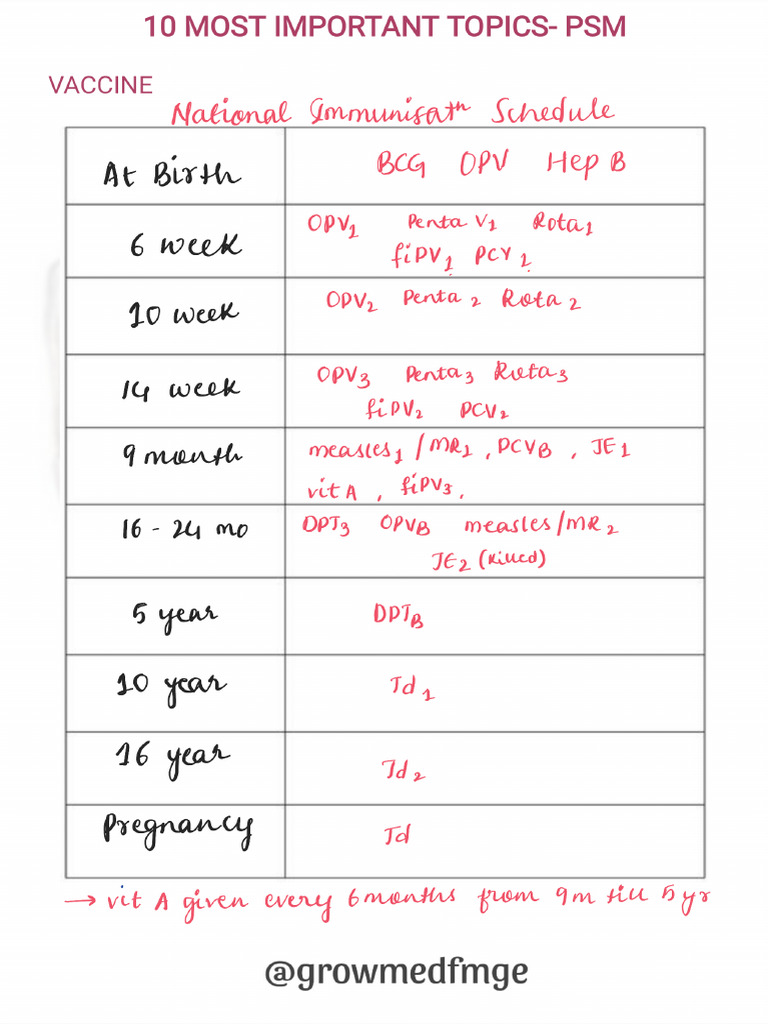 10 MOST IMPORTANT TOPICS- PSM
VACCINE
National Immunisatⁿ Schedule
At Birth BCG OPV Hep B
6 week OPV₁ Penta V₁ Rota₁
fiPV₁ PCV₁
10 week OPV₂ Penta₂ Rota₂
14 week OPV₃ Penta₃ Rota₃
fiPV₂ PCV₂
9 month measles₁ / MR₁, PCVB, JE₁
vit A, fiPV₃,
16 - 24 mo DPT₃ OPVB measles/MR₂
JE₂ (killed)
5 year DPTB
10 year Td₁
16 year Td₂
Pregnancy Td
→ vit A given every 6 months from 9m till 5 yr
@growmedfmge